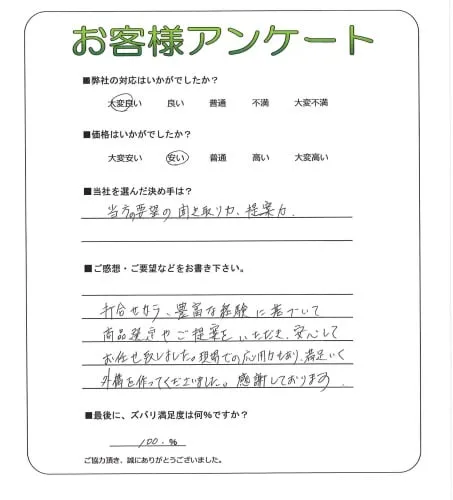 お客様アンケート
■弊社の対応はいかがでしたか?
大変良い 良い 普通 不満 大変不満
■価格はいかがでしたか?
大変安い 安い 普通 高い 大変高い
■当社を選んだ決め手は?
当方の要望の聞き取り力、提案力.
■ご感想・ご要望などをお書き下さい。
打合せから、豊富な経験に基づいて
商品選定やご提案をいただき、安心して
お任せ致しました。現場での応用力もあり、満足いく
外構を作ってくださいました。感謝しております.
■最後に、ズバリ満足度は何%ですか?
100.%
ご協力頂き、誠にありがとうございました。